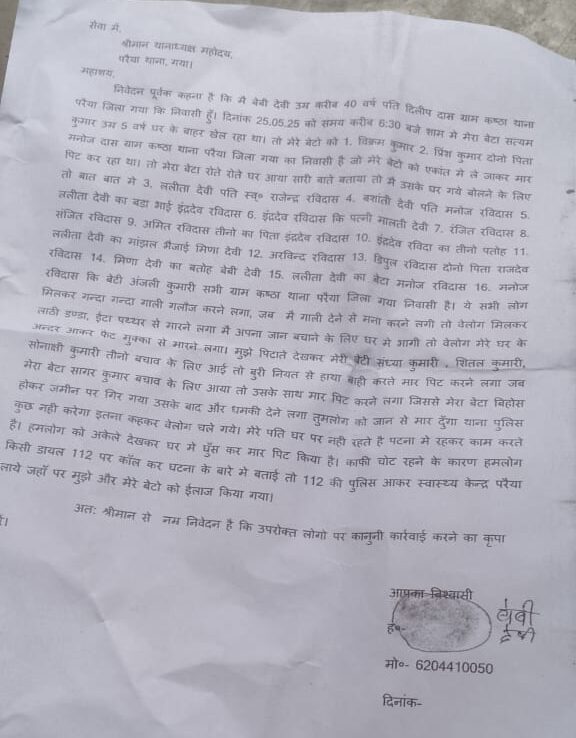 सेवा में,
श्रीमान थानाध्यक्ष महोदय,
परैया थाना, गया।
महाशय,
निवेदन पूर्वक कहना है कि मै बेबी देवी उम्र करीब 40 वर्ष पति दिलीप दास ग्राम कष्ठा थाना
परैया जिला गया कि निवासी हूँ। दिनांक 25.05.25 को समय करीब 6:30 बजे शाम मे मेरा बेटा सत्यम
कुमार उम्र 5 वर्ष घर के बाहर खेल रहा था। तो मेरे बेटो को 1. विक्रम कुमार 2. प्रिंश कुमार दोनो पिता
मनोज दास ग्राम कष्ठा थाना परैया जिला गया का निवासी है जो मेरे बेटो को एकांत मे ले जाकर मार
पिट कर रहा था। तो मेरा बेटा रोते रोते घर आया सारी बाते बताया तो मै उसके घर गये बोलने के लिए
तो बात बात मे 3. ललीता देवी पति स्व० राजेन्द्र रविदास 4. बशांती देवी पति मनोज रविदास 5.
ललीता देवी का बडा भाई इंद्रदेव रविदास 6. इंद्रदेव रविदास कि पत्नी मालती देवी 7. रंजित रविदास 8.
संजित रविदास 9. अमित रविदास तीनो का पिता इंद्रदेव रविदास 10. इंद्रदेव रविदा का तीनो पतोह 11.
ललीता देवी का मांझल भैजाई मिणा देवी 12. अरविन्द रविदास 13. डिपुल रविदास दोनो पिता राजदेव
रविदास 14. मिणा देवी का बतोह बेबी देवी 15. ललीता देवी का बेटा मनोज रविदास 16. मनोज
रविदास कि बेटी अंजली कुमारी सभी ग्राम कष्ठा थाना परैया जिला गया निवासी है। ये सभी लोग
मिलकर गन्दा गन्दा गाली गलौज करने लगा, जब मै गाली देने से मना करने लगी तो वेलोग मिलकर
लाठी डण्डा, ईटा पथ्थर से मारने लगा मै अपना जान बचाने के लिए घर मे भागी तो वेलोग मेरे घर के
अन्दर आकर फेट मुक्का से मारने लगा। मुझे पिटाते देखकर मेरी बेटी संध्या कुमारी , शितल कुमारी,
सोनाक्षी कुमारी तीनो बचाव के लिए आई तो बुरी नियत से हाथा बाही करते मार पिट करने लगा जब
मेरा बेटा सागर कुमार बचाव के लिए आया तो उसके साथ मार पिट करने लगा जिससे मेरा बेटा बिहोस
होकर जमीन पर गिर गया उसके बाद और धमकी देने लगा तुमलोग को जान से मार दुँगा थाना पुलिस
कुछ नही करेगा इतना कहकर वेलोग चले गये। मेरे पति घर पर नही रहते है पटना मे रहकर काम करते
है। हमलोग को अकेले देखकर घर मे घुँस कर मार पिट किया है। काफी चोट रहने के कारण हमलोग
किसी डायल 112 पर कॉल कर घटना के बारे मे बताई तो 112 की पुलिस आकर स्वास्थ्य केन्द्र परैया
लाये जहाँ पर मुझे और मेरे बेटो को ईलाज किया गया।
अतः श्रीमान से नम्र निवेदन है कि उपरोक्त लोगो पर कानुनी कार्रवाई करने का कृपा
आपका बिश्वासी
ह०-
बेबी
देवी
मो०- 6204410050
दिनांक-